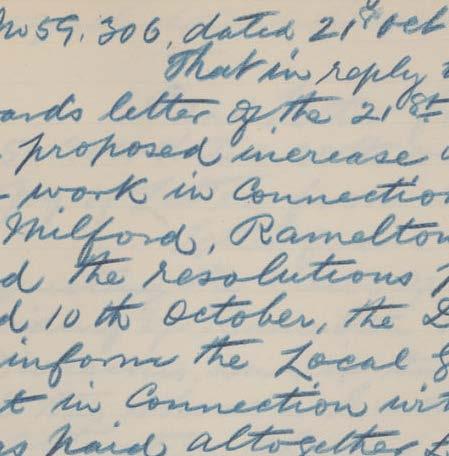 No 59,306, dated 21st Oct
That in reply
ards letter of the 21st
proposed increase
work in Connection
Milford, Ramelton
d the resolutions
d 10th October, the D
inform the Local G
t in Connection wit
as paid altogether £